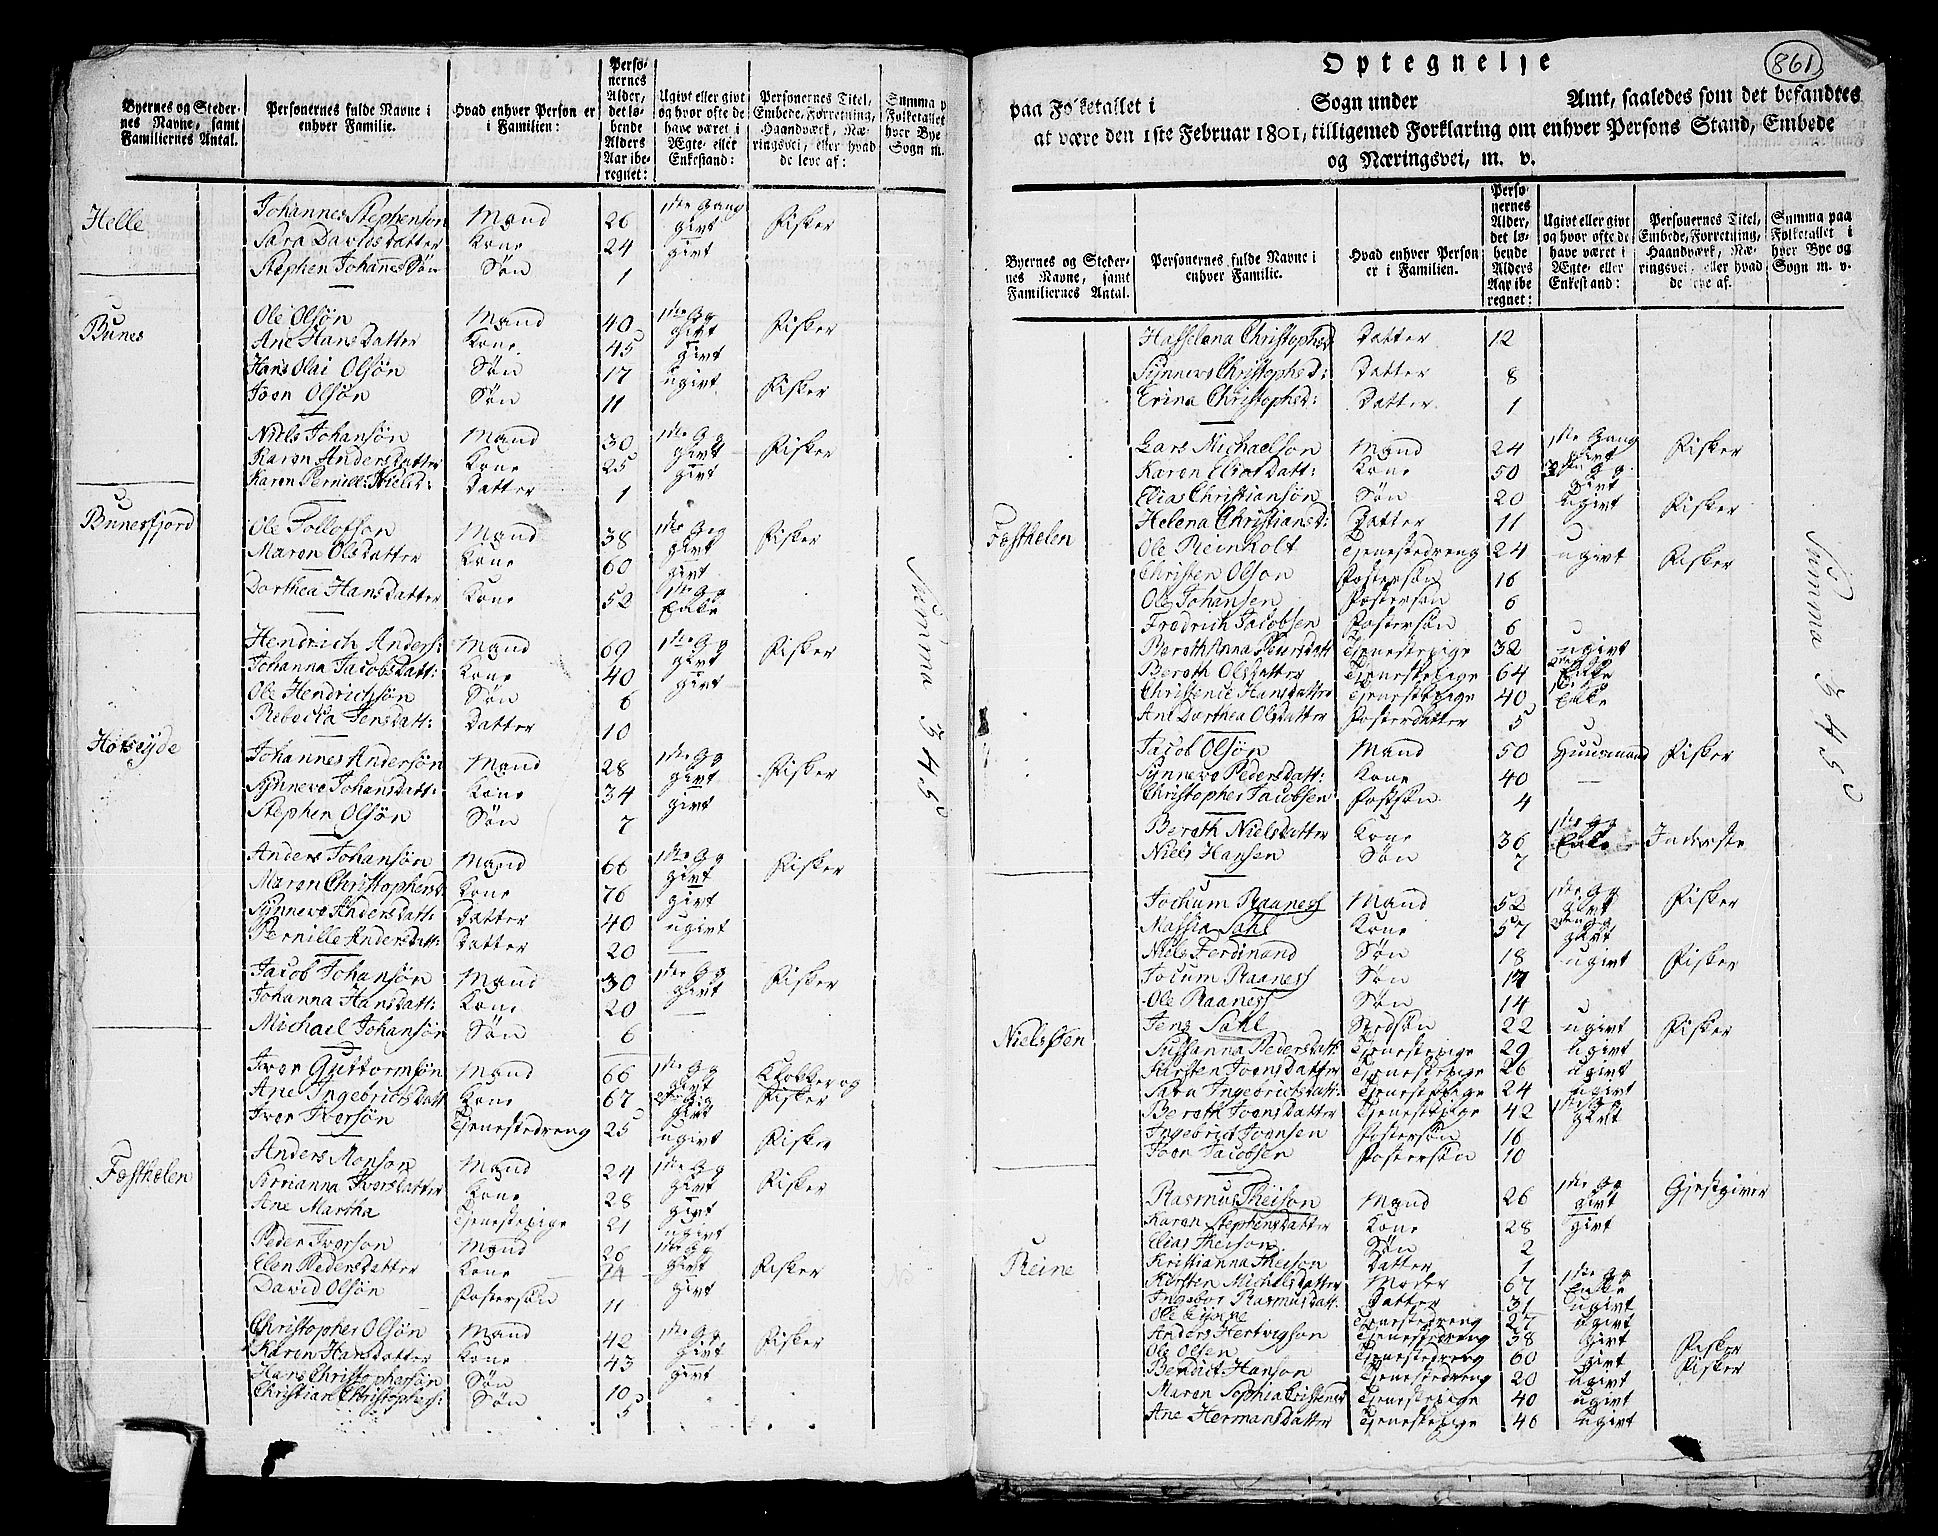 Byernes og Steder-
nes Navne, samt
Familiernes Antal.
Personernes fulde Navne i
enhver Familie.
Hvad enhver Person er
i Familien:
Perso-
nernes
Alder,
det lø-
bende
Alders
Aar ibe-
regnet:
Ugivt eller givt
og hvor ofte de
have været i
Ægte- eller
Enkestand:
Personernes Titel,
Embede, Forretning,
Haandværk, Næ-
ringsvei, eller hvad
de leve af:
Summa p
Folketallet
hver Bye
Sogn m.
Helle
Johannes Stephensøn Mand 26 1ste Gang givt Fisker
Sara Davidsdatter Kone 24 givt
Stephen Johannes Søn Søn 1
Bunes
Ole Olsøn Mand 40 1ste Gg givt Fisker
Ane Hansdatter Kone 45 givt
Hans Olai Olsøn Søn 17 ugivt Fisker
Joen Olsøn Søn 11
Niels Johansøn Mand 30 1ste Gg givt Fisker
Karen Andersdatter Kone 25 givt
Karen Pernill: Nielsd: Datter 1
Bunesfjord
Ole Tollofson Mand 38 1ste Gg givt Fisker
Maren Olsdatter Kone 60 givt
Dorthea Hansdatter Kone 52 1ste Gg Enke
Hofseyde
Hendrich Anders: Mand 69 1ste Gg givt Fisker
Johanna Jacobsdatt: Kone 40 givt
Ole Hendrichsøn Søn 6
Rebecka Jensdatt: Datter 10
Johannes Andersøn Mand 28 1ste Gg givt Fisker
Synneve Johansdatt: Kone 34 givt
Stephen Olsøn Søn 7
Anders Johansøn Mand 66 1ste Gg givt Fisker
Maren Christophersd Kone 76 givt
Synneve Andersdatt: Datter 40 ugivt
Pernille Andersdatt: Datter 20
Jacob Johansøn Mand 30 1ste Gg givt Fisker
Johanna Hansdatt: Kone 20
Michael Johansøn Søn 6
Festhelen
Iver Guttormsøn Mand 66 1ste Gg givt Klokker og
Ane Ingebrictsdatt Kone 67 2den Gg givt Fisker
Iver Iversøn Tjenestedreng 25 ugivt Fisker
Anders Monsøn Mand 24 1ste Gg givt Fisker
Kirianna Iversdatter Kone 28 givt
Ane Martha Tjenestepige 21 ugivt
Peder Iverson Mand 26 1ste Gg givt Fisker
Elen Pedersdatter Kone 24 givt
David Olsøn Fostersøn 11
Christopher Olsøn Mand 42 1ste Gg givt Fisker
Karen Hansdatter Kone 43 givt
Hans Christophersøn Søn 10
Christian Christophers: Søn 5
Summa 345
861
Optegnelse
paa Folketallet i Sogn under Amt, saaledes som det befandtes
at være den 1ste Februar 1801, tilligemed Forklaring om enhver Persons Stand, Embede
og Næringsvei, m. v.
Byernes og Steder-
nes Navne, samt
Familiernes Antal.
Personernes fulde Navne i
enhver Familie.
Hvad enhver Person
er i Familien.
Perso-
nernes
Alder,
det lø-
bende
Alders
Aar ibe
regnet:
Ugivt eller givt
og hvor ofte de
have været i
Ægte- eller
Enkestand:
Personernes Titel,
Embede, Forretning,
Haandværk, Næ-
ringsvei, eller hvad
de leve af.
Summa paa
Folketallet i
hver Bye og
Sogn m. v.
Hasselena Christophed Datter 12
Synneve Christophed: Datter 8
Erina Christophed: Datter 1
Festhelen
Lars Michaelson Mand 24 1ste Gang givt Fisker
Karen Eliasdatt: Kone 50 2den Gg. givt
Elias Christiansøn Søn 20 ugivt Fisker
Helena Christiansd: Datter 11
Ole Reinholt Tjenestedreng 24 ugivt Fisker
Christen Olson Fostersøn 16
Ole Johansen Fosterson 6
Fredrich Jacobsen Fostersøn 6
Bereth Anna Peursdatt Tjenestepige 32 ugivt
Bereth Olsdatter Tjenestepige 64 2den Gg Enke
Christence Hansdatter Tjenestepige 40 1ste Enke
Ane Dorthea Olsdatter Fosterdatter 5
Jacob Olsøn Mand 50 Huusmand Fisker
Synneve Pedersdatt: Kone 40
Christopher Jacobsen Fostsøn 4
Bereth Nielsdatter Kone 36 1ste Gg Enke Inderste
Niels Hansen Søn 7
Nielssten
Jochum Raaness Mand 52 1ste Gg givt Fisker
Massia Dahl Kone 57 2den Gg givt
Niels Ferdinand Søn 18 ugivt Fisker
Jocum Raaness Søn 17
Ole Raaness Søn 14
Jens Dahl Stedsøn 22 ugivt Fisker
Sussanna Pedersdatt: Tjenestepige 29 ugivt
Kirsten Joensdatter Tjenestepige 26 ugivt
Sara Ingebrictsdatt: Tjenestepige 24 ugivt
Bereth Joensdatter Tjenestepige 42 1ste Gg givt
Ingebrict Joensen Fostersøn 16
Joen Jacobsen Fostersøn 10
Reine
Rasmus Theison Mand 26 1ste Gg givt Gjestgiver
Karen Stephensdatter Kone 28 givt
Elias Theison Søn 2
Kristianna Theison Datter 1
Kersten Michelsdatter Moder 67 1ste Gg Enke
Ingebor Rasmusdatt: Datter 31 ugivt
Ole Tjenestedreng 27 ugivt
Anders Hertvigson Tjenestedreng 38 givt Fisker
Ole Olsen Tjenestedreng 60 givt Fisker
Bendict Hanson Tjenestedreng 20 ugivt
Maren Sophia Tjenestepige 40 ugivt
Ane Hermansdatter Tjenestepige 46 ugivt
Summa 345